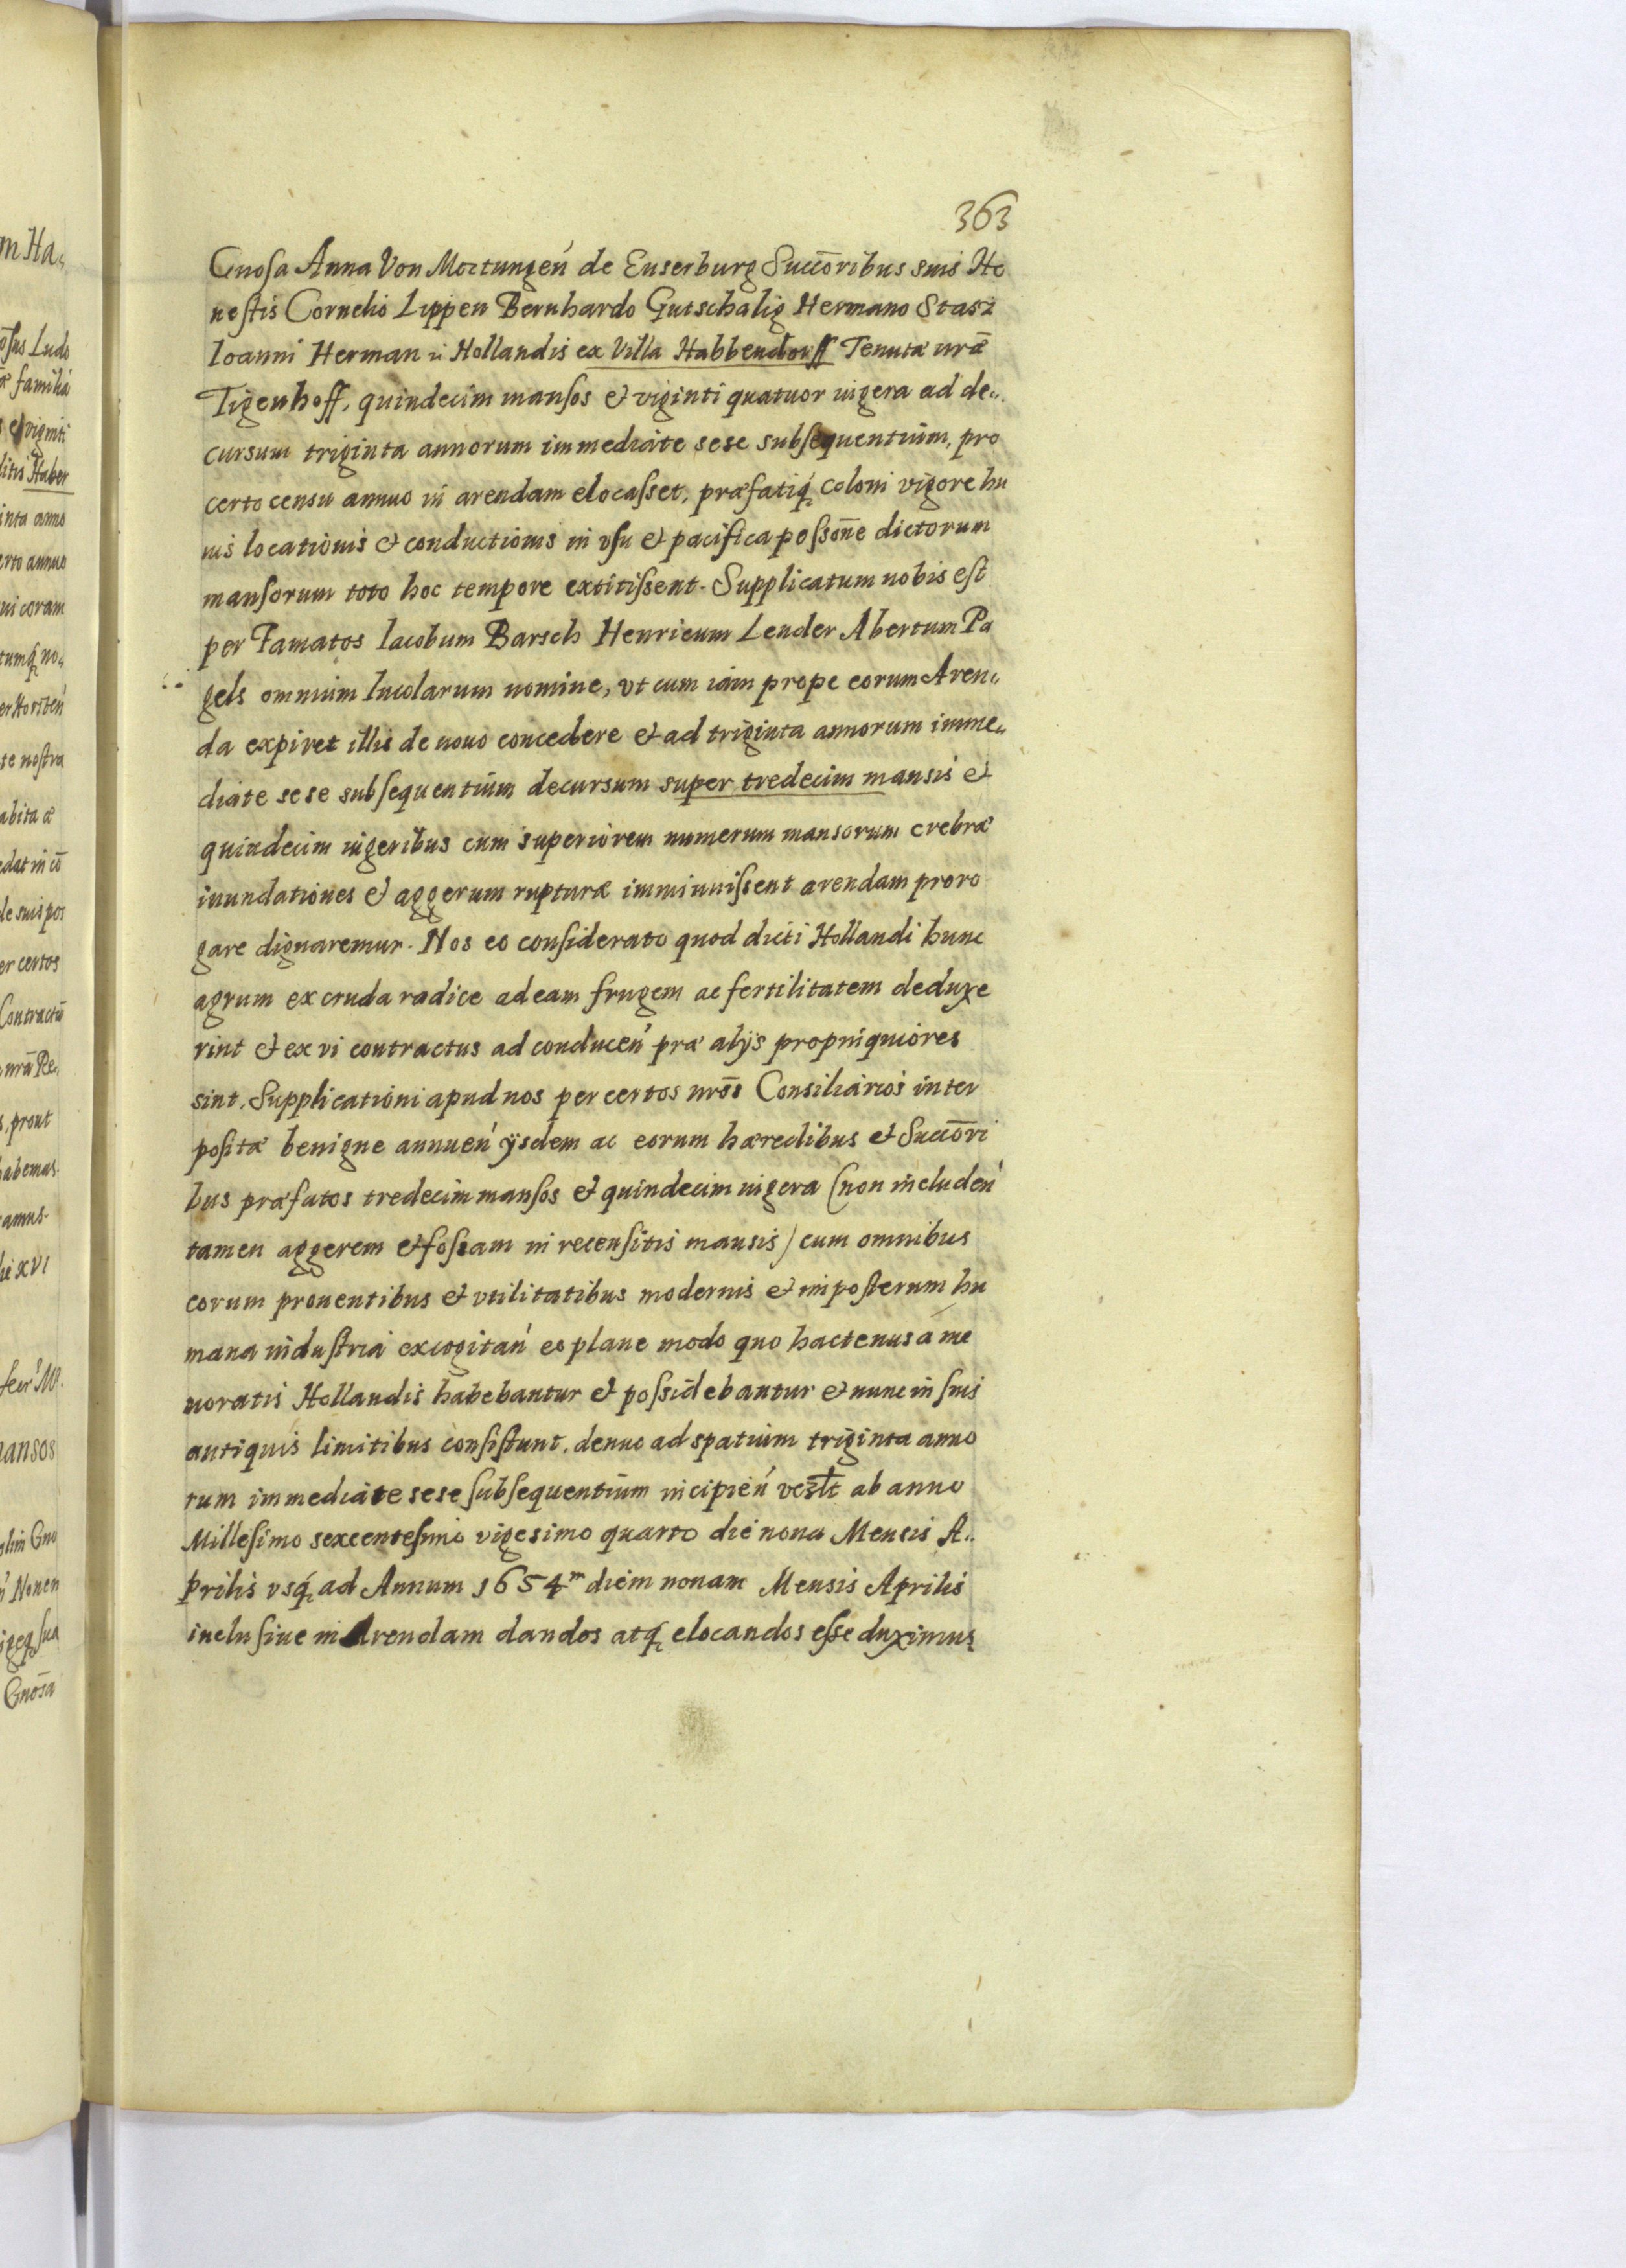 363
Gnosa Anna Von Mortungen de Euserburg Succōribus suis Ho
nestis Cornelio Lippen Bernhardo Gutschalig Hermano Stasz
Ioanni Herman ii Hollandis ex Villa Habbendorff Tenutæ nrǣ
Tigenhoff, quindecim mansos et viginti quatuor iugera ad de„
cursum triginta annorum immediate sese subsequentium, pro
certo censu annuo in arendam elocasset, præfatiq́ coloni vigore hu
ius locationis et conductionis in vsu et pacifica possōne dictorum
mansorum toto hoc tempore extitissent. Supplicatum nobis est
per Famatos Iacobum Barsch Henricum Lender Abertum Pa
gels omnium Incolarum nomine, vt cum iam prope eorum Aren„
da expiret illis de nouo concedere et ad triginta annorum imme„
diate sese subsequentium decursum super tredecim mansis et
quindecim iugeribus cum superiorem numerum mansorum crebræ
inundationes et aggerum rupturæ imminuissent arendam proro
gare dignaremur. Nos eo considerato quod dicti Hollandi hunc
agrum ex cruda radice ad eam frugem ac fertilitatem deduxe
rint et ex vi contractus ad conducen' præ alijs propinquiores
sint. Supplicationi apud nos per certos nrōs Consiliarios inter
positæ benigne annuen' ijsdem ac eorum hæredibus et Succōri
bus præfatos tredecim mansos et quindecim iugera (non includen'
tamen aggerem et fossam in recensitis mansis) cum omnibus
eorum prouentibus et vtilitatibus modernis et imposterum hu
mana industria excogitan' eo plane modo quo hactenus a me
moratis Hollandis habebantur et possidebantur et nunc in suis
antiquis limitibus consistunt. denuo ad spatium triginta anno
rum immediate sese subsequentium incipien' vezlt ab anno
Millesimo sexcentesimo vigesimo quarto die nona Mensis A„
prilis vsq́ ad Annum 1654m diem nonam Mensis Aprilis
inclusiue in Arendam dandos atq́ elocandos esse duximus